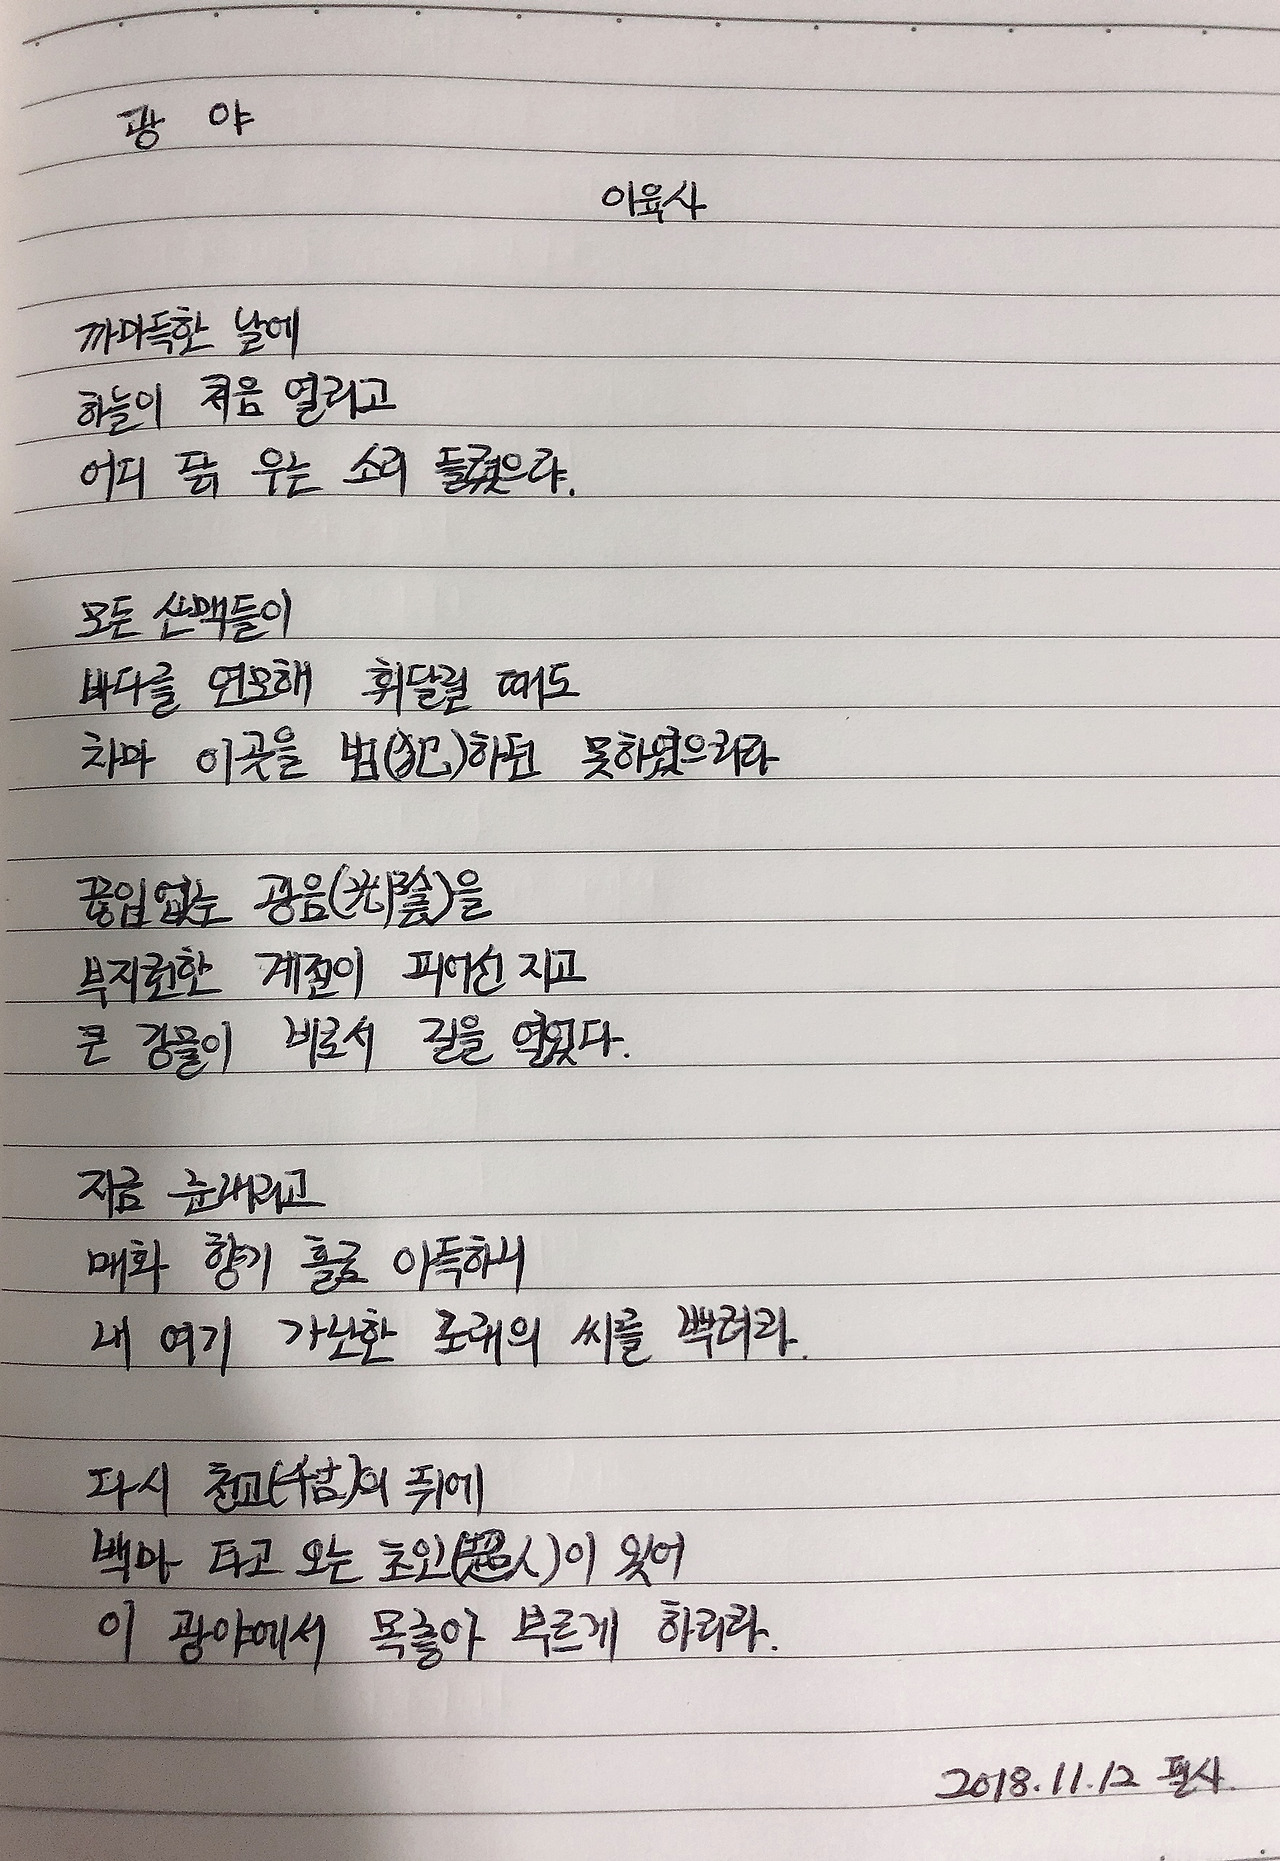 광 야
이육사
까마득한 날에
하늘이 처음 열리고
어디 닭 우는 소리 들렸으랴.
모든 산맥들이
바다를 연모해 휘달릴 때도
차마 이곳을 범(犯)하던 못하였으리라
끊임없는 광음(光陰)을
부지런한 계절이 피어선 지고
큰 강물이 비로서 길을 열었다.
지금 눈내리고
매화 향기 홀로 아득하니
내 여기 가난한 노래의 씨를 뿌려라.
다시 천고(千古)의 뒤에
백마 타고 오는 초인(超人)이 있어
이 광야에서 목놓아 부르게 하리라.
2018.11.12 필사.